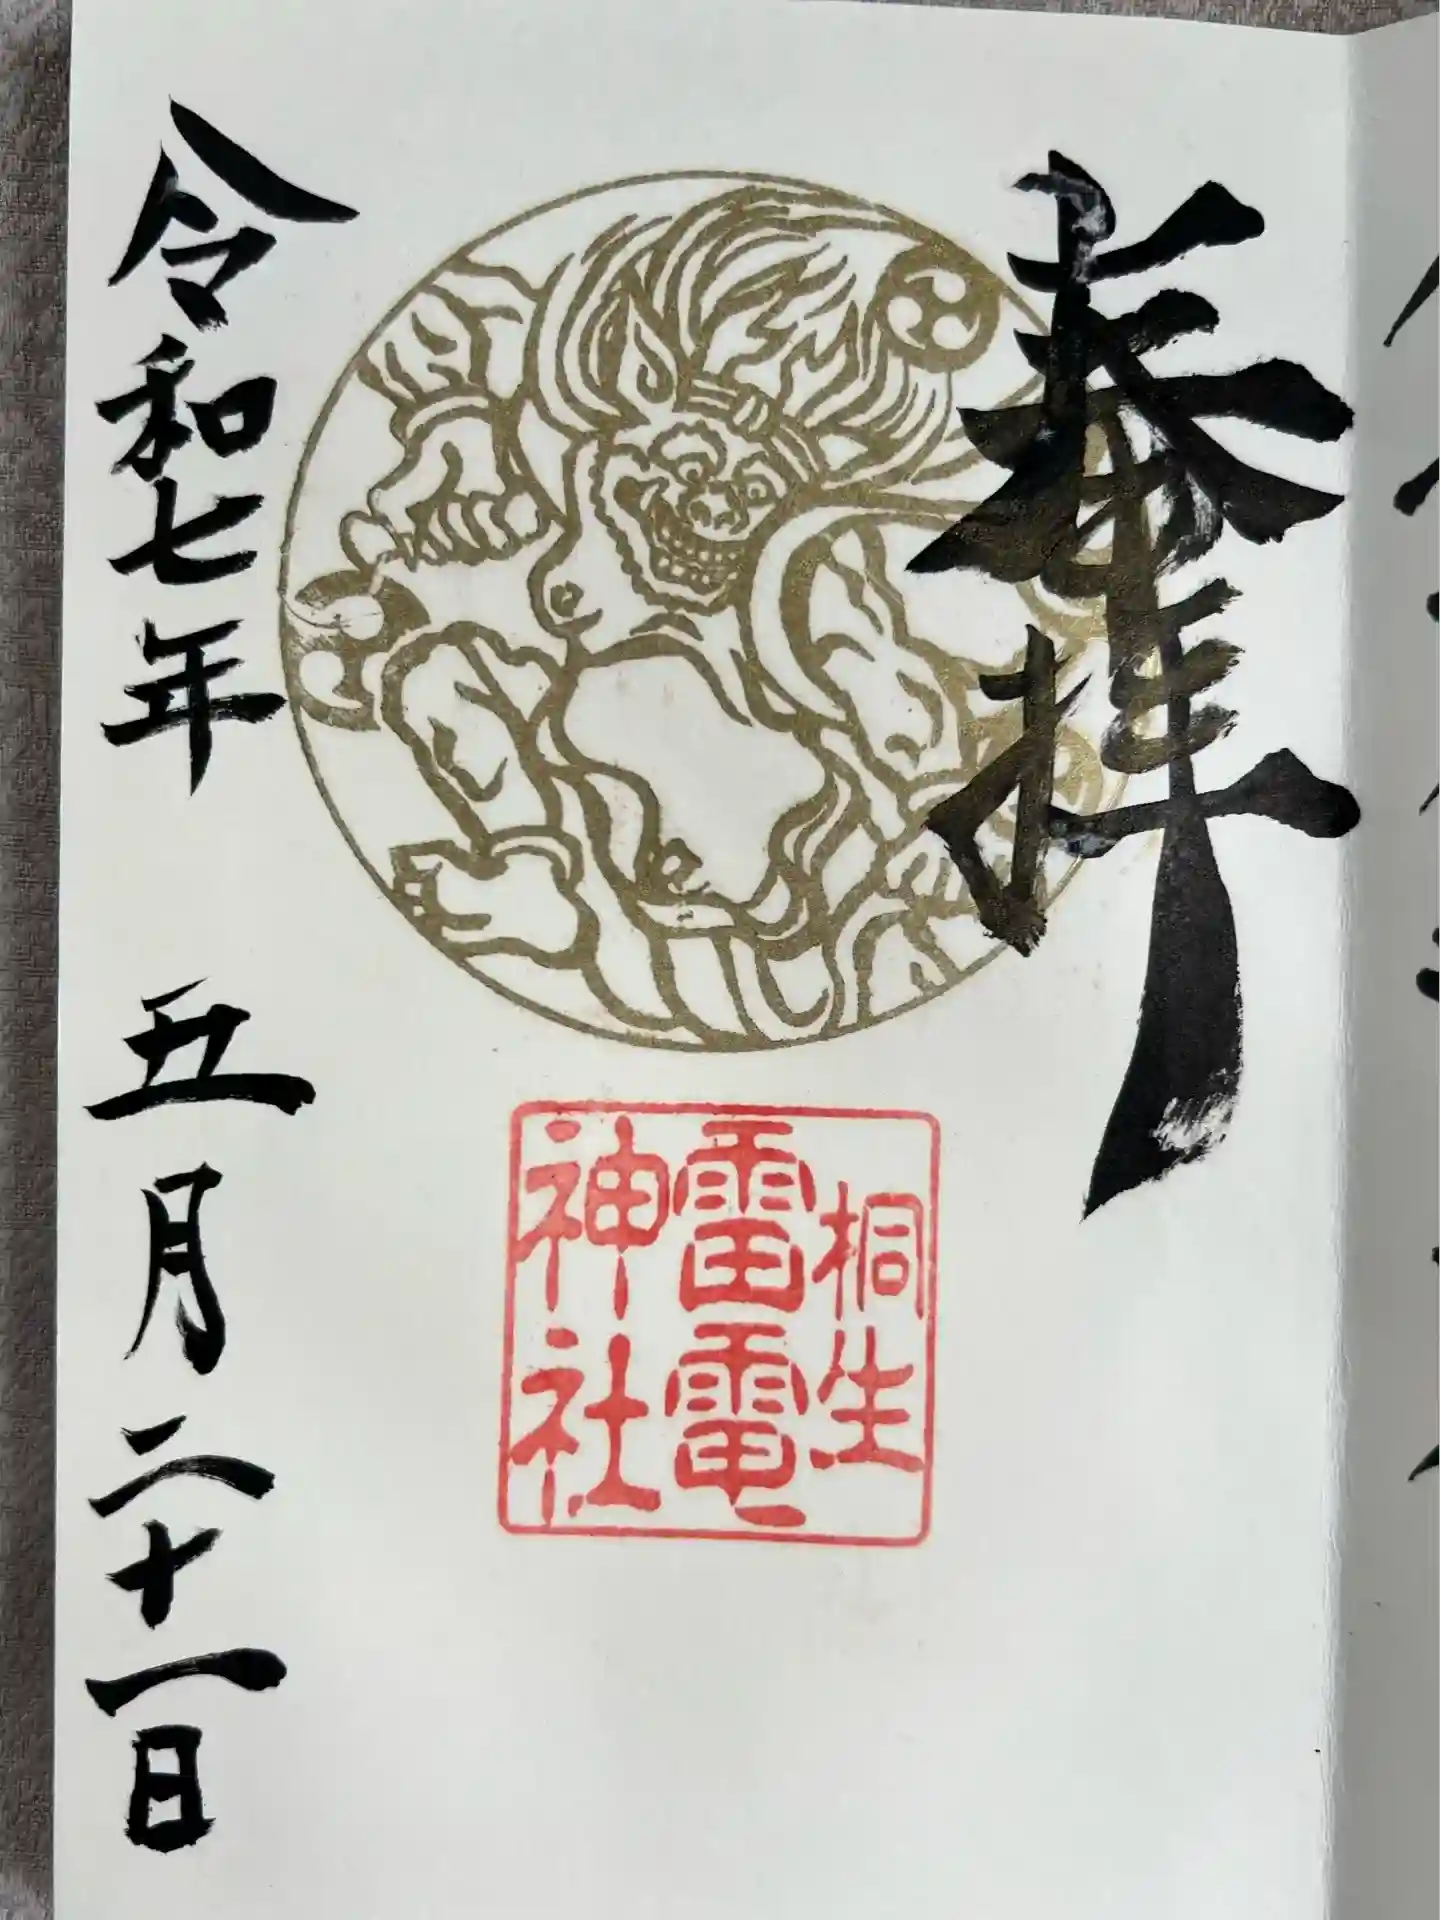 奉拝
桐生
雷電
神社
令和七年 五月二十一日